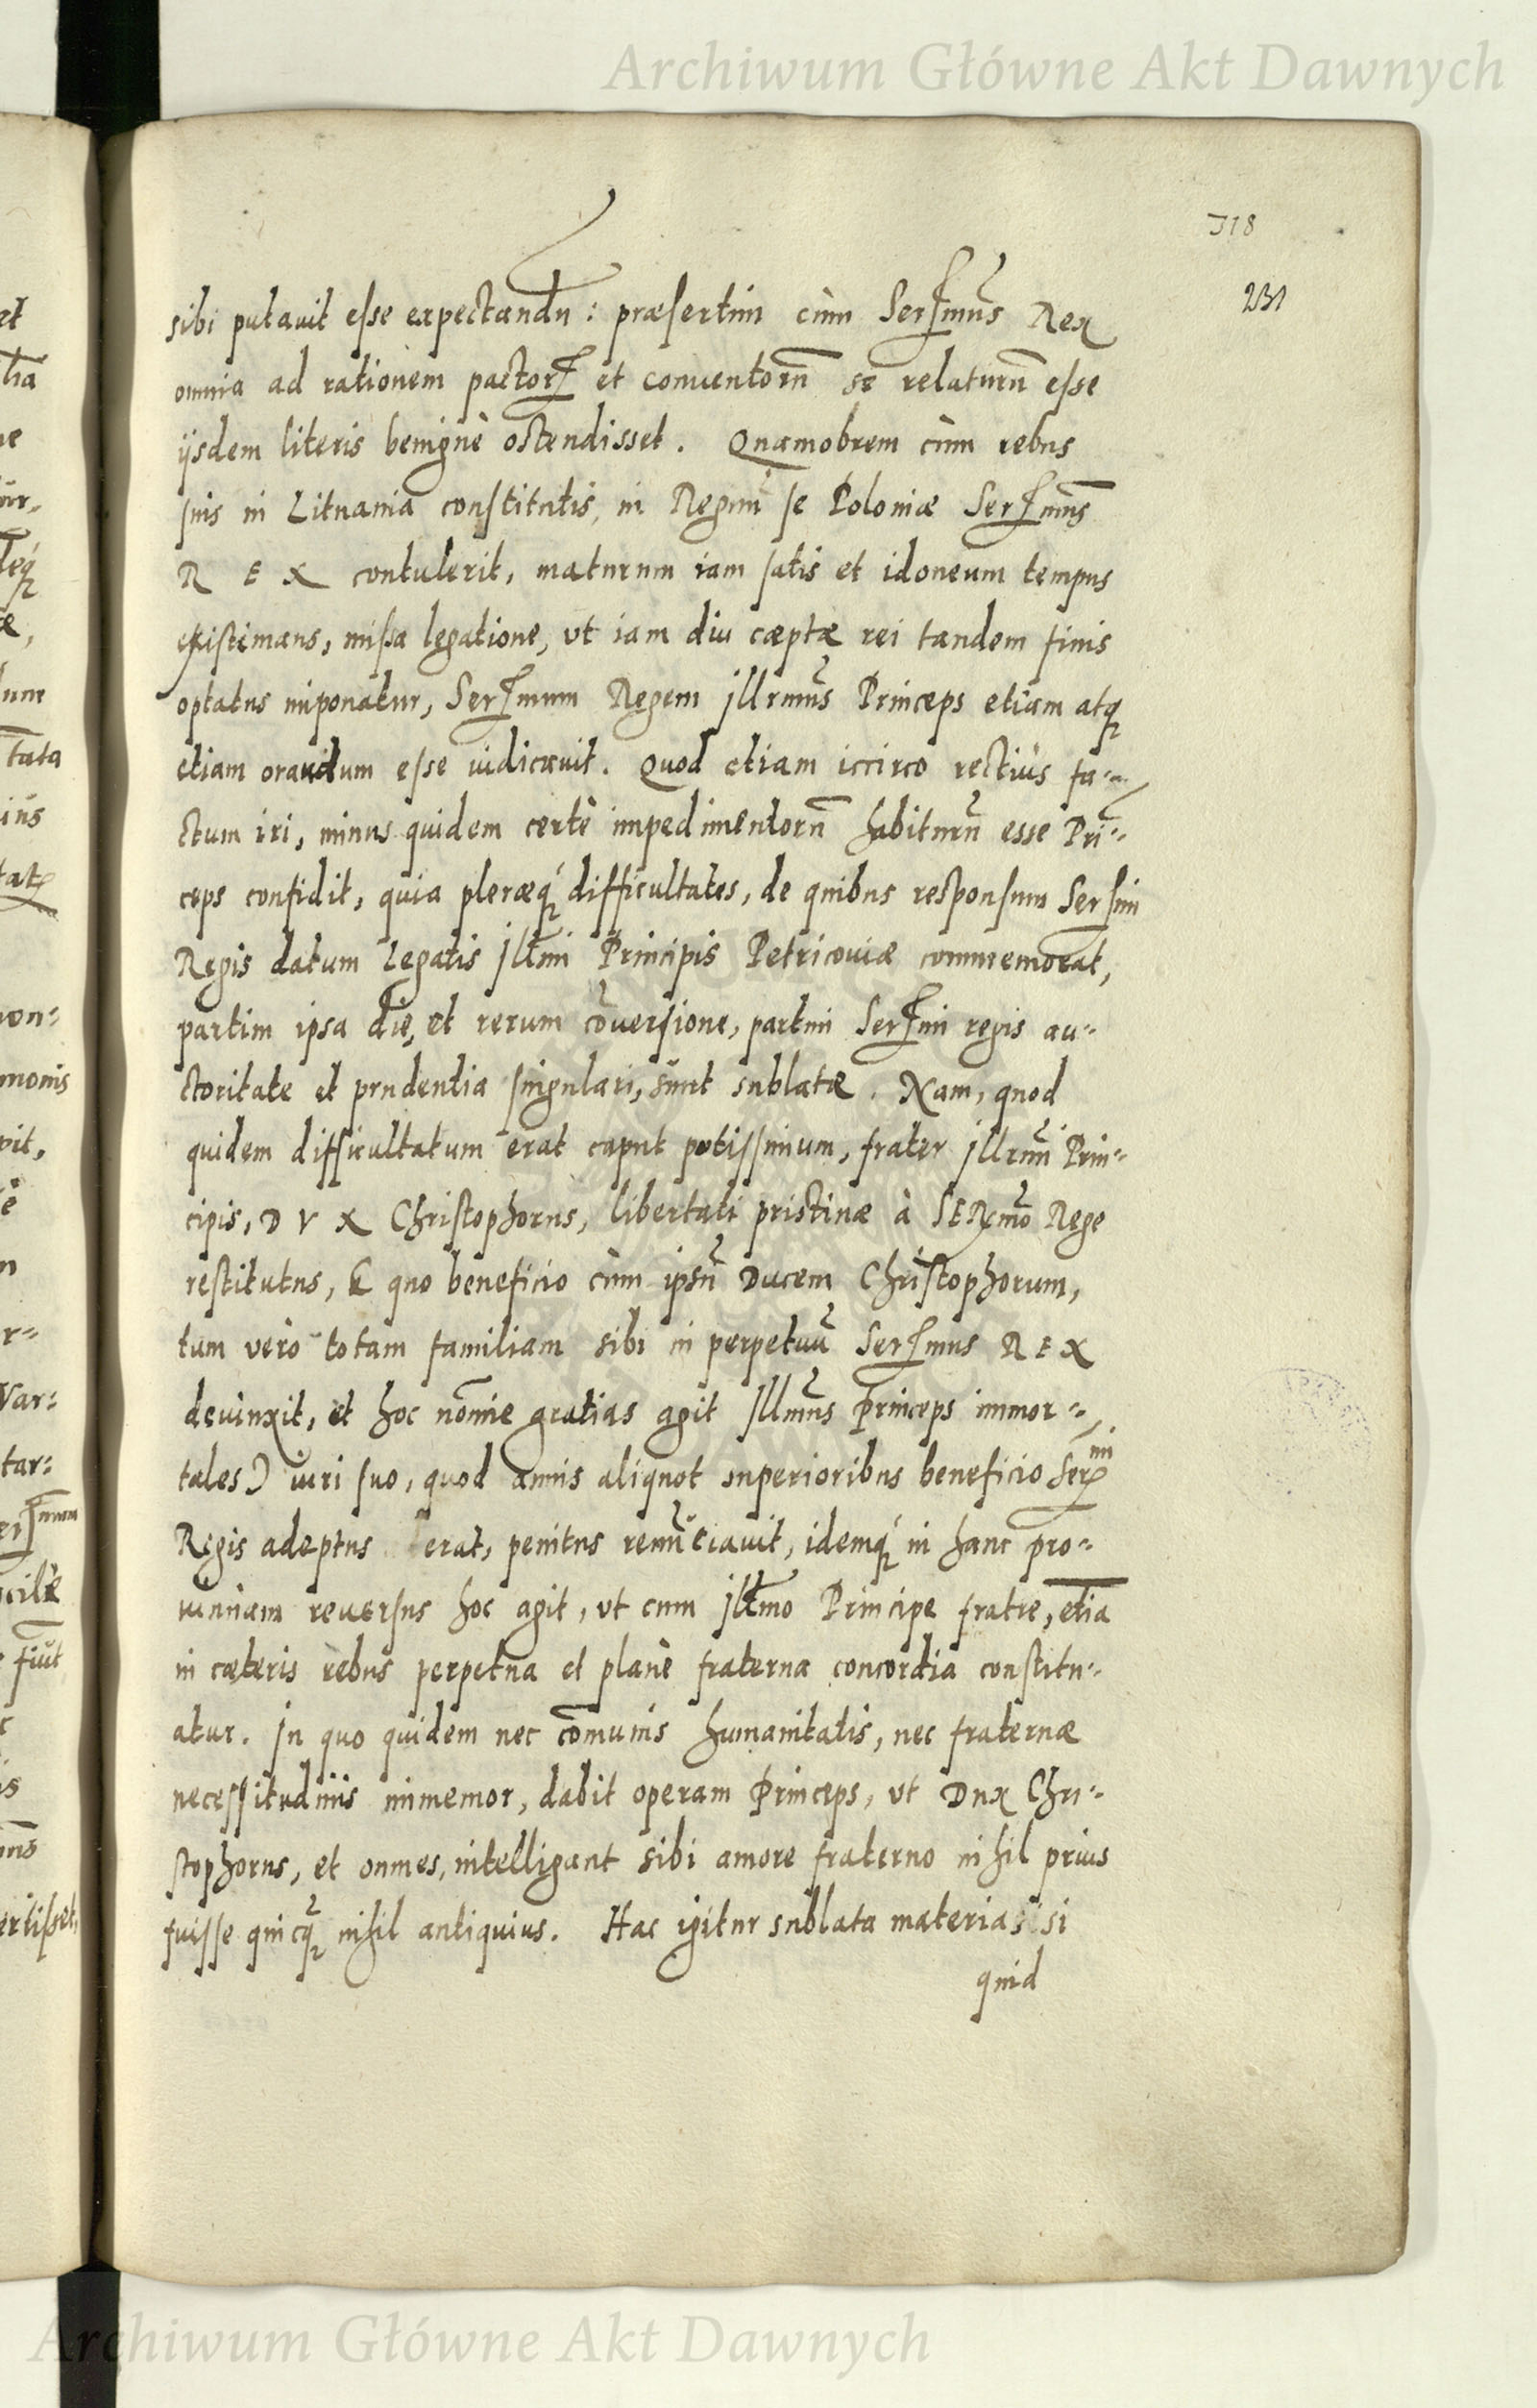 Archiwum Główne Akt Dawnych
318
231
sibi putauit esse expectandũ: præsertim cùm Serſmũs Rex
omnia ad rationem pactorꝝ et conuentorũ se relaturũ esse
ijsdem literis benignè ostendisset. Quamobrem cùm rebus
suis in Lituania constitutis, in Regnũ se Poloniæ Serſmũs
R E X contulerit, maturum iam satis et idoneum tempus
existimans, missa legatione, vt iam diu cæptæ rei tandem finis
optatus imponatur, Serſmum Regem jllrmũs Princeps etiam atq̃
etiam orandum esse iudicauit. Quod etiam iccirco rectiùs fa=
ctum iri, minus quidem certè impedimentorũ habiturũ esse Prĩ=
ceps confidit, quia pleræq́ difficultates, de quibus responsum Serſmi
Regis datum Legatis jlłmi Principis Petricouiæ commemorat,
partim ipsa die, et rerum cõuersione, partim Serſmi regis au=
ctoritate et prudentia singulari, sunt sublatæ. Nam, quod
quidem difficultatum erat caput potissimum, frater jllrmĩ Prin=
cipis, D V X Christophorus, libertati pristinæ à SERmõ Rege
restitutus, (E quo beneficio cùm ipsũ Ducem Christophorum,
tum verò totam familiam sibi in perpetuũ Serſmus R E X
deuinxit, et hoc nõmine gratias agit jllmũs Princeps immor=
tales) iuri suo, quod annis aliquot superioribus beneficio Serꝝmi
Regis adeptus erat, penitus renũciauit, idemq́ in hanc pro=
uinciam reuersus hoc agit, vt cum jlłmo Principe fratre, etiã
in cæteris rebus perpetua et planè fraterna concordia constitu=
atur. jn quo quidem nec cõmunis humanitatis, nec fraternæ
necessitudinis immemor, dabit operam Princeps, vt Dux Chri=
stophorus, et omnes, intelligant sibi amore fraterno nihil prius
fuisse quicq̃ nihil antiquius. Hac igitur sublata materia, si
quid
Archiwum Główne Akt Dawnych